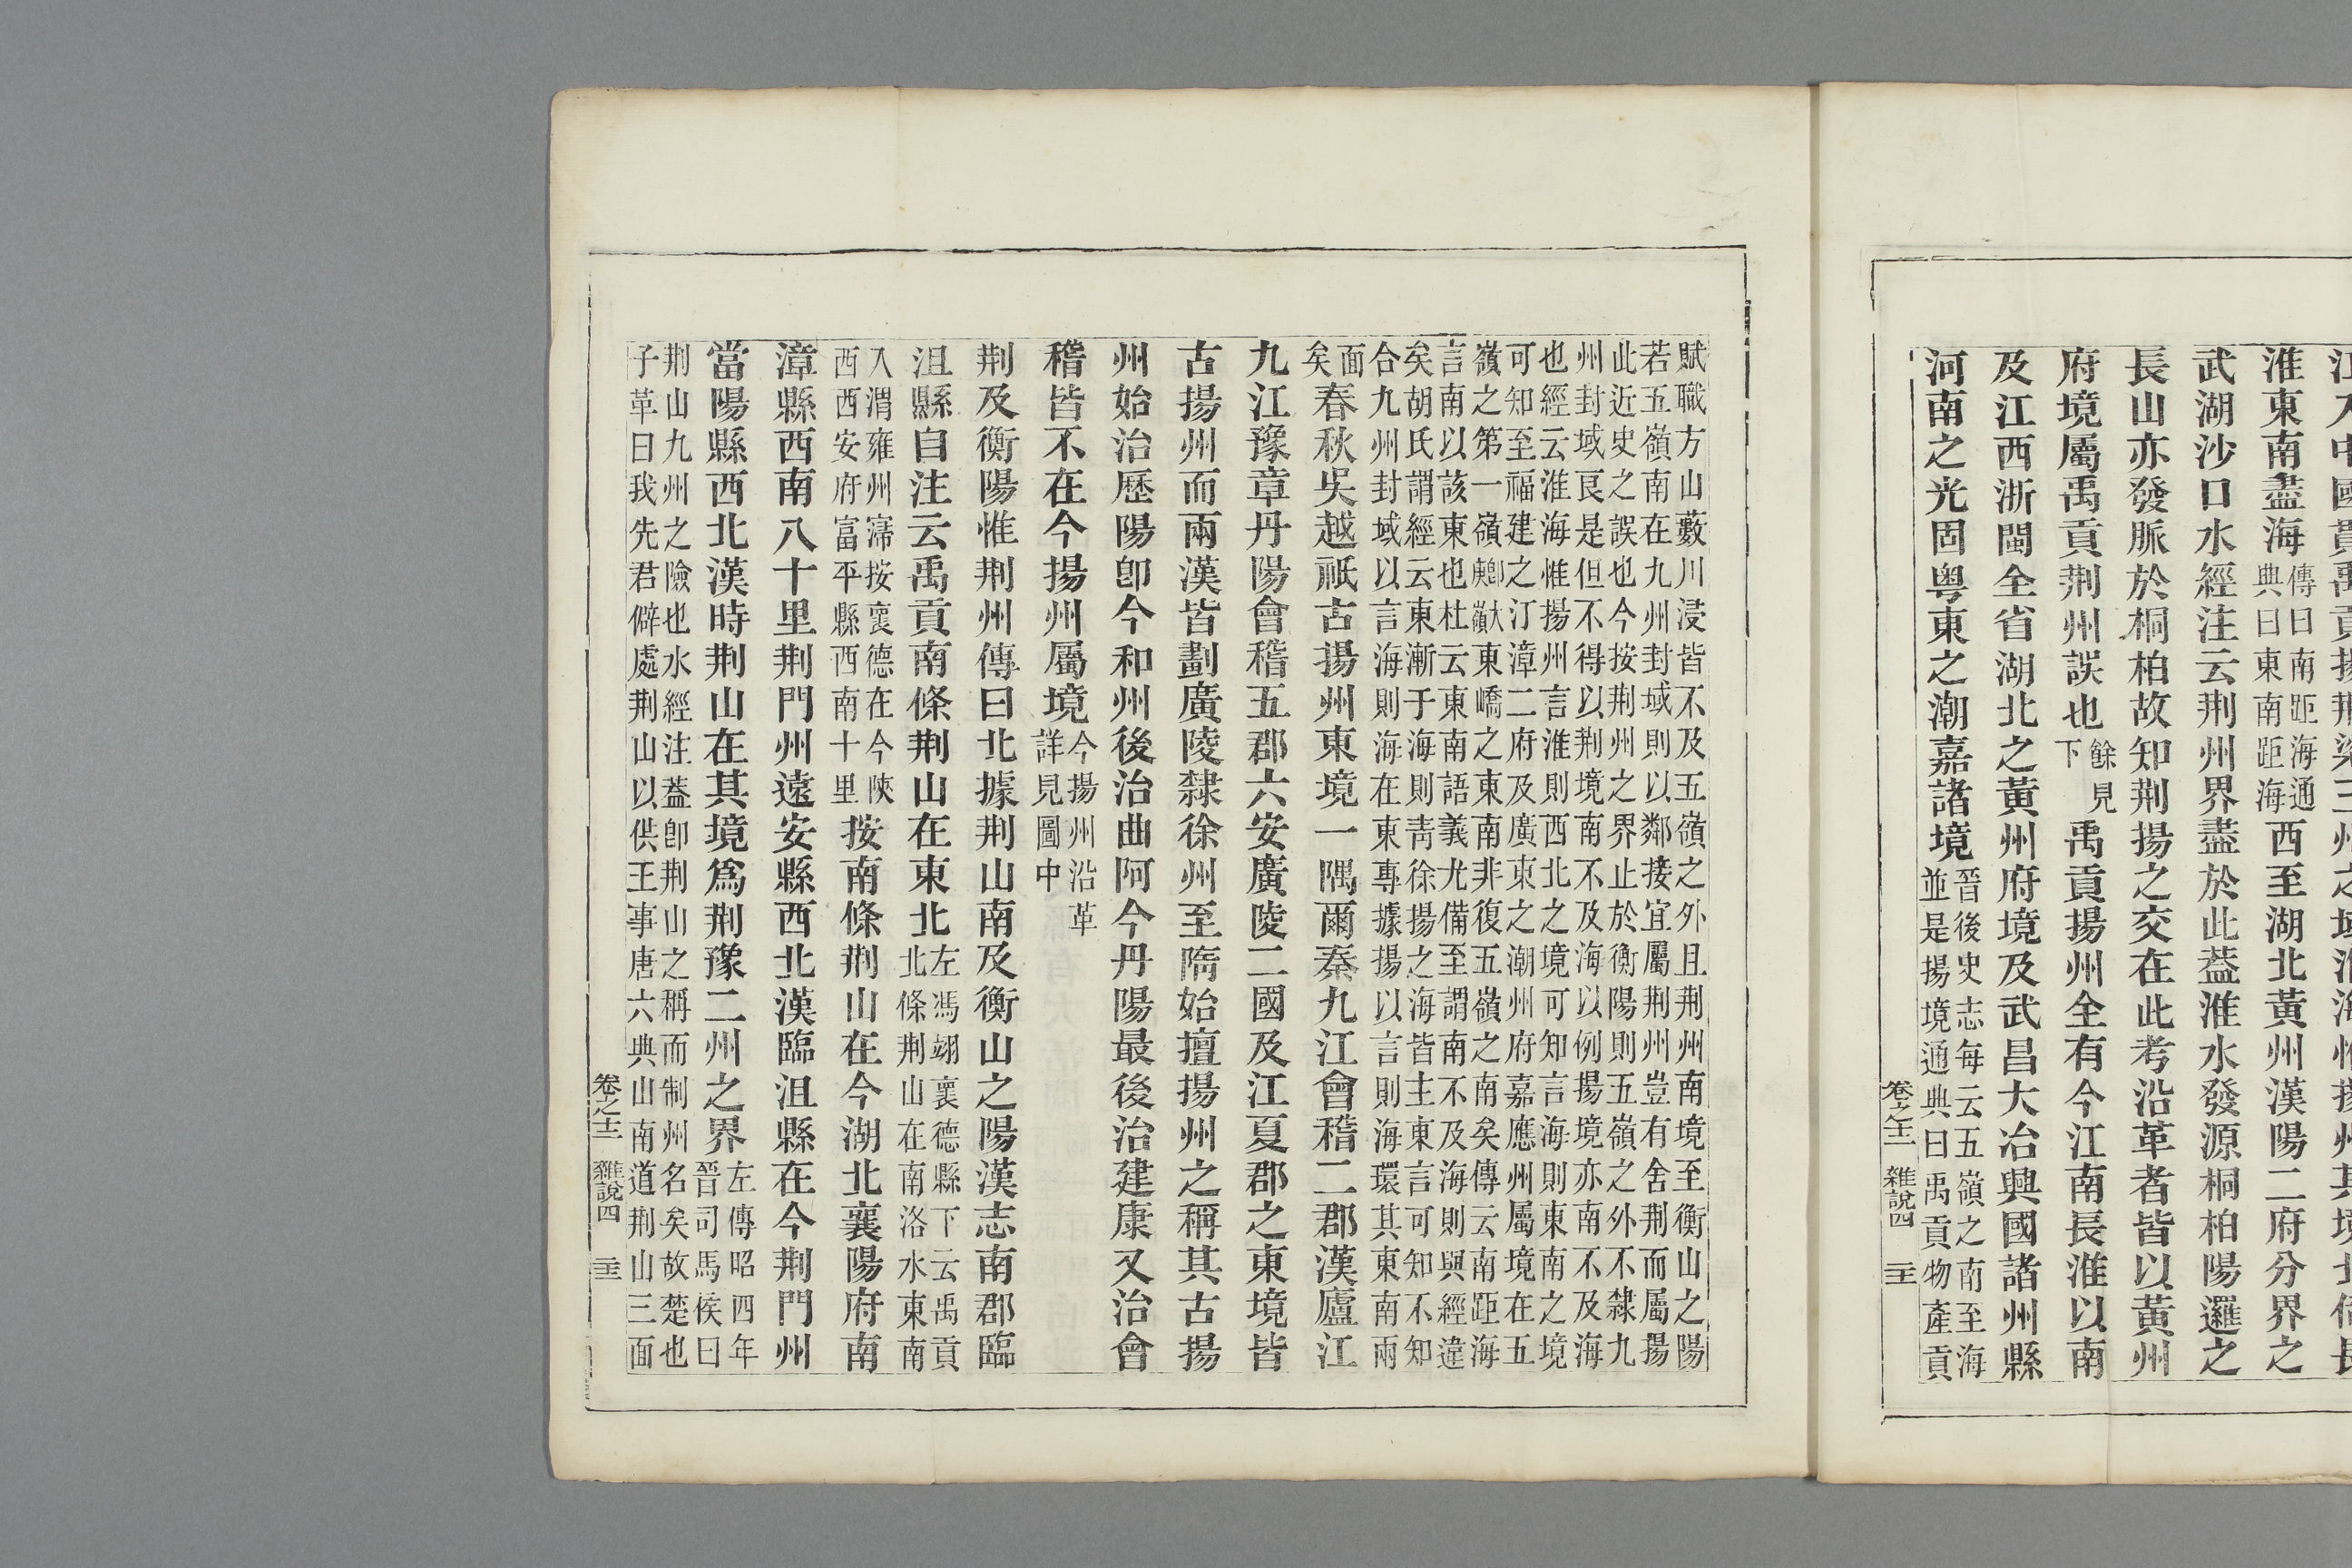 江入中國貫禹貢揚荆梁三州之域淮海惟揚州其境北倚長
淮東南盡海傳曰南距海通典曰東南距海西至湖北黃州漢陽二府分界之
武湖沙口水經注云荆州界盡於此葢淮水發源桐柏陽邏之
長山亦發脈於桐柏故知荆揚之交在此考沿革者皆以黃州
府境屬禹貢荆州誤也餘見下禹貢揚州全有今江南長淮以南
及江西浙閩全省湖北之黃州府境及武昌大冶興國諸州縣
河南之光固粤東之潮嘉諸境晉後史志每云五嶺之南至海並是揚境通典曰禹貢物產貢
卷之十二 雜說四
賦職方山藪川浸皆不及五嶺之外且荆州南境至衡山之陽
若五嶺南在九州封域則以鄰接宜屬荆州豈有舍荆而屬揚
此近史之誤也今按荆州之界止於衡陽則五嶺之外不隸九
州封域良是但不得以荆境南不及海以例揚境亦南不及海
也經云淮海惟揚州言淮則西北之境可知言海則東南之境
可知至福建之汀漳二府及廣東之潮州府嘉應州屬境在五
嶺之第一嶺即大庾嶺東嶠之東南非復五嶺之南矣傳云南距海
言南以該東也杜云東南語義尤備至謂南不及海則與經違
矣胡氏謂經云東漸于海則青徐揚之海皆主東言可知不知
合九州封域以言海則海在東專據揚以言則海環其東南兩
面矣春秋吳越祇古揚州東境一隅爾秦九江會稽二郡漢廬江
九江豫章丹陽會稽五郡六安廣陵二國及江夏郡之東境皆
古揚州而兩漢皆劃廣陵隸徐州至隋始擅揚州之稱其古揚
州始治歷陽卽今和州後治曲阿今丹陽最後治建康又治會
稽皆不在今揚州屬境今揚州沿革詳見圖中
荆及衡陽惟荆州傳曰北據荆山南及衡山之陽漢志南郡臨
沮縣自注云禹貢南條荆山在東北左馮翊襄德縣下云禹貢北條荆山在南洛水東南
入渭雍州寖按襄德在今陝西西安府富平縣西南十里按南條荆山在今湖北襄陽府南
漳縣西南八十里荆門州遠安縣西北漢臨沮縣在今荆門州
當陽縣西北漢時荆山在其境爲荆豫二州之界左傳昭四年晉司馬侯曰
荆山九州之險也水經注葢卽荆山之稱而制州名矣故楚也
子革曰我先君僻處荆山以供王事唐六典山南道荆山三面
卷之十二 雜說四